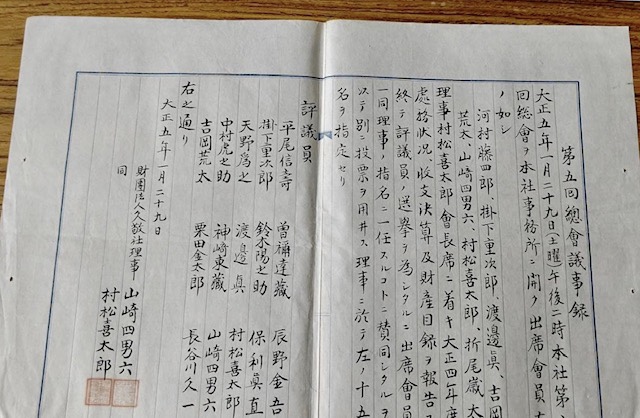 第五回總會議事録
大正五年一月二十九日(土曜)午後二時本社第
回総会ヲ本社事務所ニ開ク出席會員
ノ如シ
河村藤四郎、掛下重次郎、渡邊眞、吉岡
荒太、山崎四男六、村松喜太郎、折尾嚴太
理事村松喜太郎會長席ニ着キ大正四年度
處務状况、收支決算及財産目録ヲ報告
終テ評議員ノ選挙ヲ為シタルニ出席會員
一同理事ノ指名ニ一任スルコトニ賛同シタルヲ
以テ別ニ投票ヲ用井ス理事ニ於テ左ノ十五
名ヲ指定セリ
評議員
平尾信壽 曽禰達藏 辰野金吾
掛下重次郎 鈴木陽之助 保利眞直
天野為之 渡邊眞 村松喜太郎
中村虎之助 神崎東藏 山崎四男六
吉岡荒太 栗田金太郎 長谷川久一
右之通リ
大正五年一月二十九日
財團法人久敬社理事 山崎四男六
同 村松喜太郎